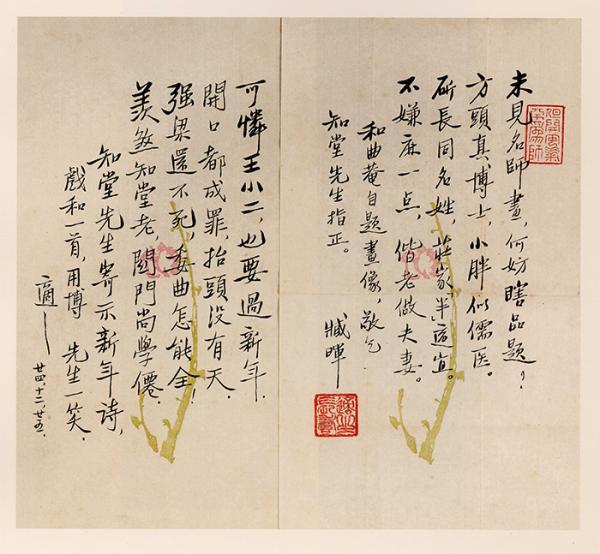 未見名師畫,何妨瞎品題?
方頭真博士,小胖似儒醫。
長同名姓,莊家半適宜。
不嫌麻一點,偕老做夫妻。
和曲菴自題畫像,敬乞
知堂先生指正。
藏暉
但開風氣不為師
適之長壽
可憐王小二,也要過新年.
開口都成罪,抬頭沒有天.
强梁還不死,委曲怎能全!
羨煞知堂老,關門尚學僊.
知堂先生寄示新年诗,
戲和一首,用博 先生一笑.
適
廿四,十二,廿五.